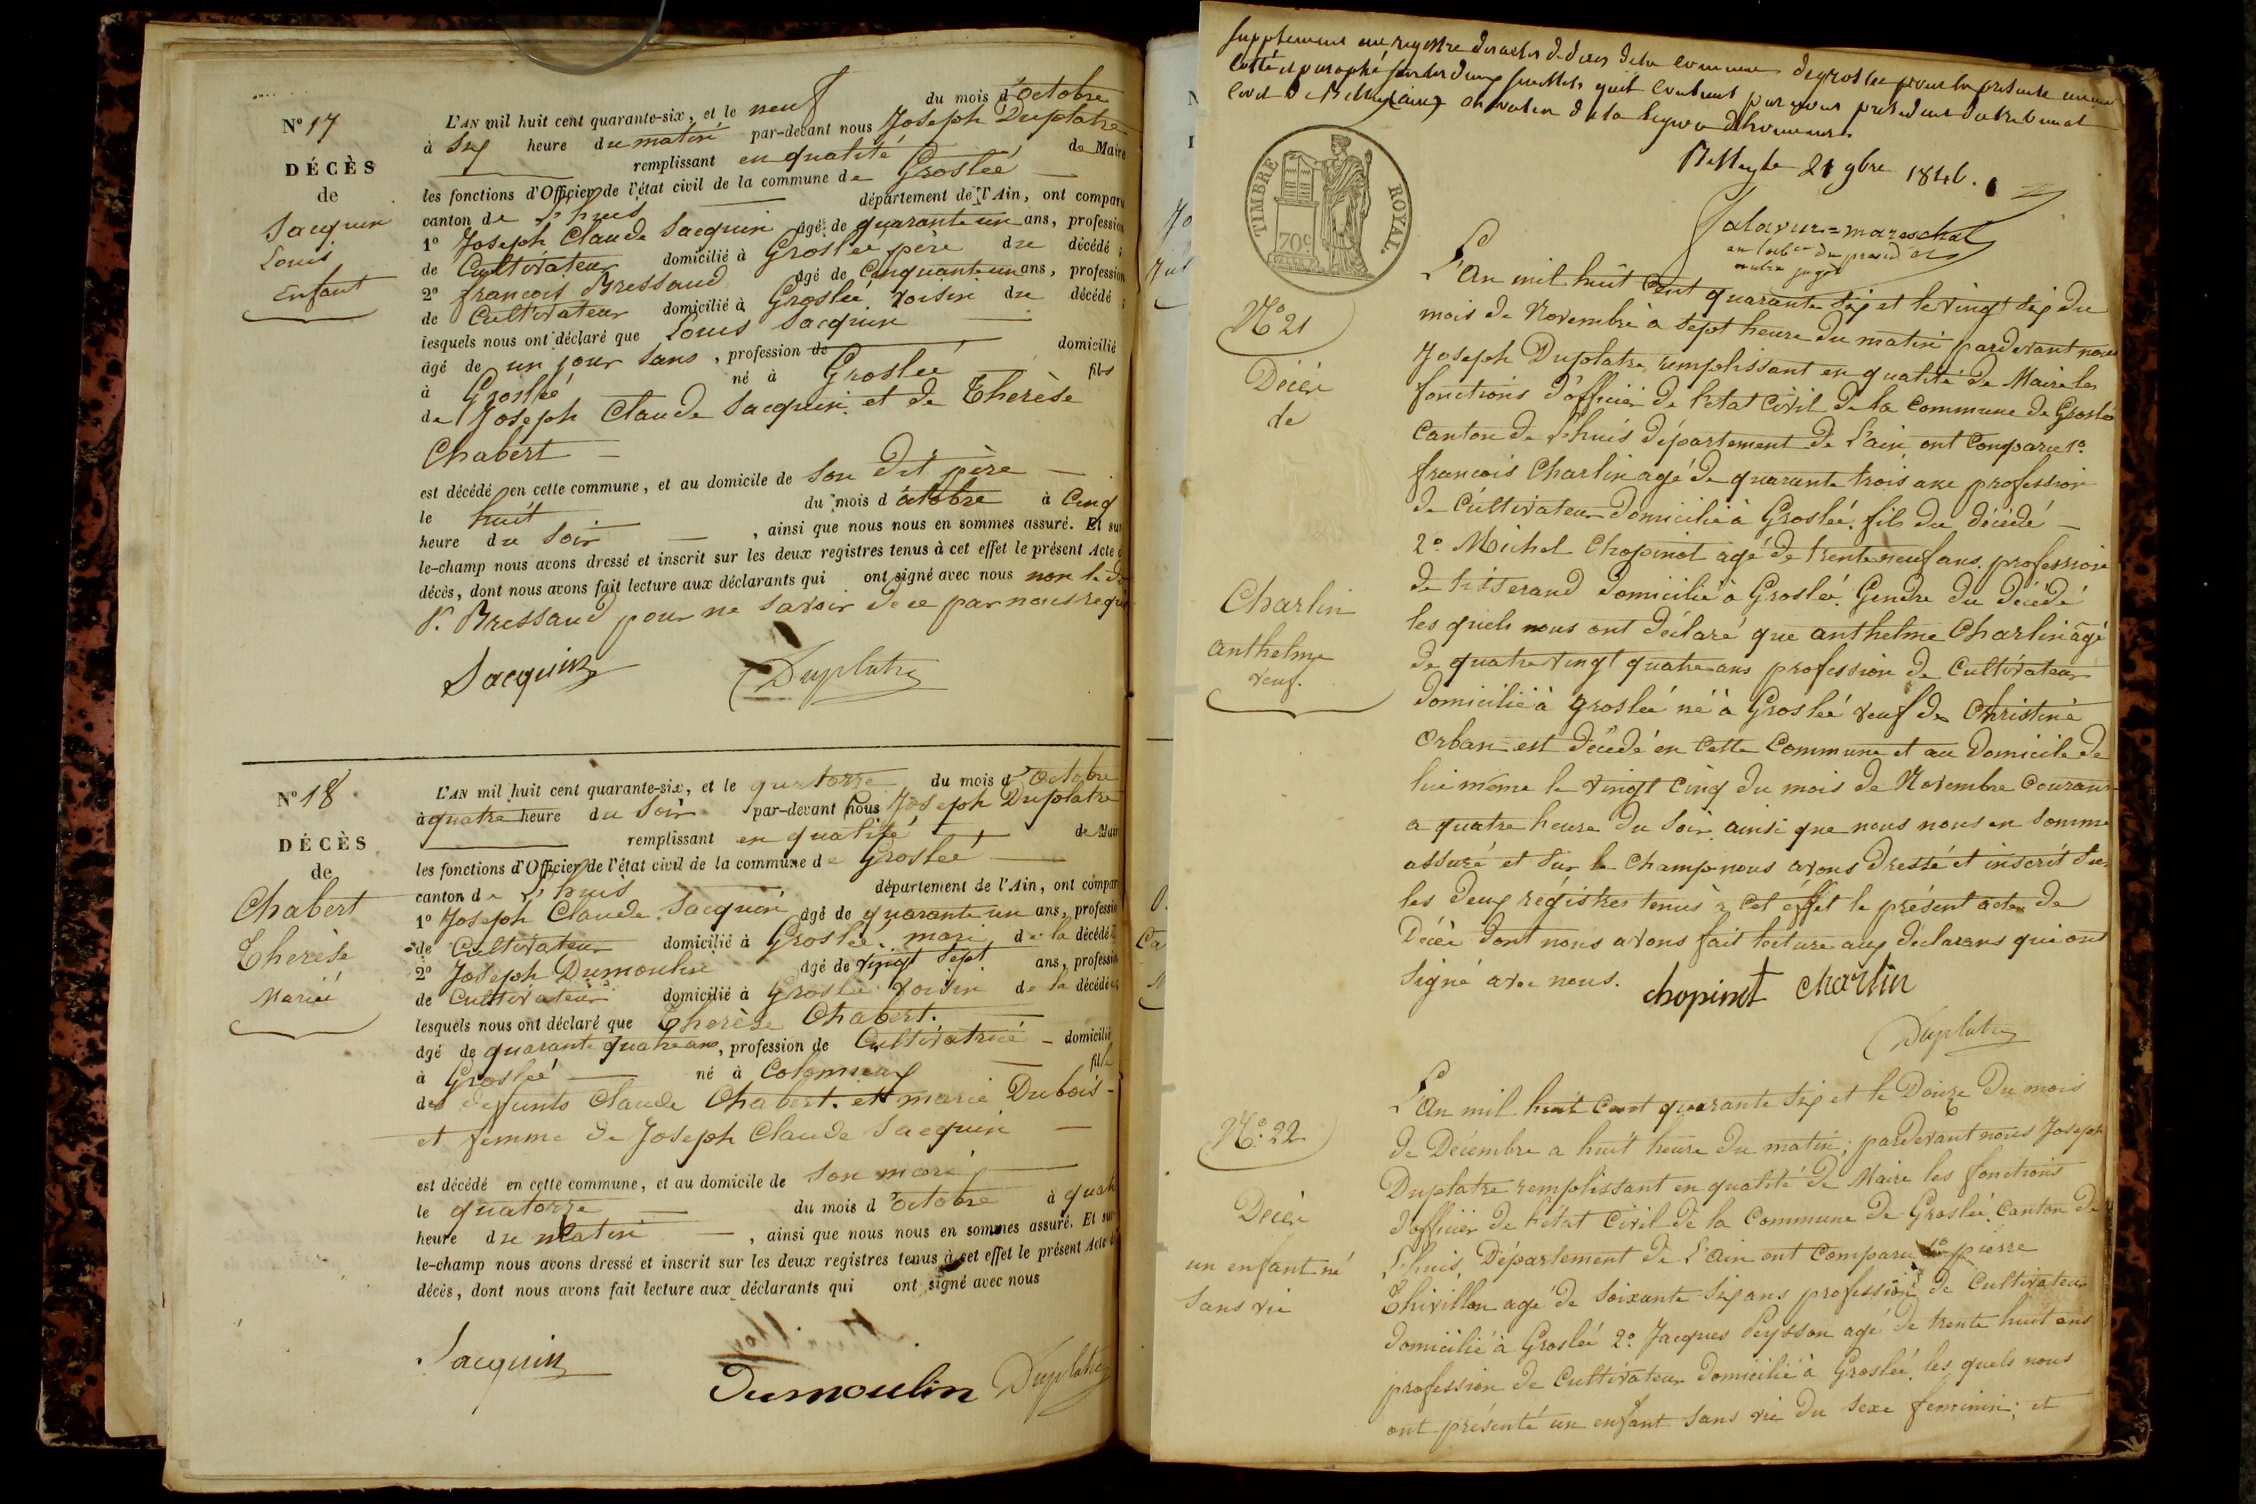 N° 17
DÉCÈS
de
Jacquin
Louis
Enfant
L'AN mil huit cent quarante-six, et le neuf du mois d'Octobre
à six heure du matin par-devant nous Joseph Duplatre
remplissant en qualité de Maire
les fonctions d'Officier de l'état civil de la commune de Groslée
canton de L'huis département de l'Ain, ont comparu
1° Joseph Claude Jacquin âgé de quarante un ans, profession
de Cultivateur domicilié à Groslée père du décédé
2° francois Bressaud âgé de Cinquante un ans, profession
de Cultivateur domicilié à Groslée voisin du décédé
lesquels nous ont déclaré que Louis Jacquin
âgé de un jour sans, profession de domicilié
à Groslée né à Groslée fils
de Joseph Claude Jacquin et de Therèse
Chabert
est décédé en cette commune, et au domicile de son dit père
le huit du mois d'octobre à Cinq
heure du soir, ainsi que nous nous en sommes assuré. Et sur
le-champ nous avons dressé et inscrit sur les deux registres tenus à cet effet le présent Acte
décès, dont nous avons fait lecture aux déclarants qui ont signé avec nous non le dt
f. Bressaud pour ne savoir de ce par nous requis
Jacquin Duplatre
N° 18
DÉCÈS
de
Chabert
Therèse
Mariée
L'AN mil huit cent quarante-six, et le quatorze du mois d'Octobre
à quatre heure du soir par-devant nous Joseph Duplatre
remplissant en qualité de Maire
les fonctions d'Officier de l'état civil de la commune de Groslée
canton de L'huis département de l'Ain, ont comparu
1° Joseph Claude Jacquin âgé de quarante un ans, profession
de Cultivateur domicilié à Groslée mari de la décédée
2° Joseph Dumoulin âgé de vingt sept ans, profession
de Cultivateur domicilié à Groslée voisin de la décédée
lesquels nous ont déclaré que Therèse Chabert
âgé de quarante quatre ans, profession de Cultivatrice domicilié
à Groslée né à Colomieux fille
des defunts Claude Chabert et marie Dubois
et femme de Joseph Claude Jacquin
est décédé en cette commune, et au domicile de son mari
le quatorze du mois d'octobre à quatre
heure du matin, ainsi que nous nous en sommes assuré. Et sur
le-champ nous avons dressé et inscrit sur les deux registres tenus à cet effet le présent Acte
décès, dont nous avons fait lecture aux déclarants qui ont signé avec nous
Jacquin Dumoulin Duplatre
Supplement au registre des actes de deces de la commune de groslee pour la presente annee
cotté et paraphé sur les deux feuillets quil contient par nous president du tribunal
civil de Belley chevalier de la legion dhonneur
Belley le 21 9bre 1846.
TIMBRE ROYAL
70c
N° 21
Décès
de
Charlin
anthelme
veuf.
L'An mil huit cent quarante six et le vingt six du
mois de Novembre à sept heure du matin pardevant nous
Joseph Duplatre remplissant en qualité de Maire les
fonctions d'officier de l'etat civil de la commune de Groslée
Canton de L'huis département de L'ain ont comparu 1°
francois Charlin agé de quarante trois ans profession
de Cultivateur domicilié à Groslée fils du décédé
2° Michel Chopinot agé de trente neuf ans profession
de tisserand domicilié à Groslée Gendre du décédé
les quels nous ont déclaré que anthelme Charlin âgé
de quatre vingt quatre ans profession de Cultivateur
domicilié à groslée né à Groslée veuf de Christine
Orban est décédé en cette Commune et au domicile de
lui même le vingt cinq du mois de Novembre courant
a quatre heure du soir ainsi que nous nous en somme
assuré et sur le champ nous avons dressé et inscrit sur
les deux régistres tenus à cet éffet le présent acte de
Décès dont nous avons fait lecture aux déclarans qui ont
signé avec nous. chopinot charlin
Duplatre
N° 22
Décès
un enfant né
sans vie
L'An mil huit cent quarante six et le Douze du mois
de Décembre a huit heure du matin; pardevant nous Joseph
Duplatre remplissant en qualité de Maire les fonctions
d'officier de l'état civil de la commune de Groslée Canton de
L'huis Département de L'ain ont comparu 1° pierre
Thivillon agé de soixante six ans profession de Cultivateur
domicilié à Groslée 2° Jacques Peysson agé de trente huit ans
profession de Cultivateur domicilié à Groslée les quels nous
ont présenté un enfant sans vie du sexe feminin; et